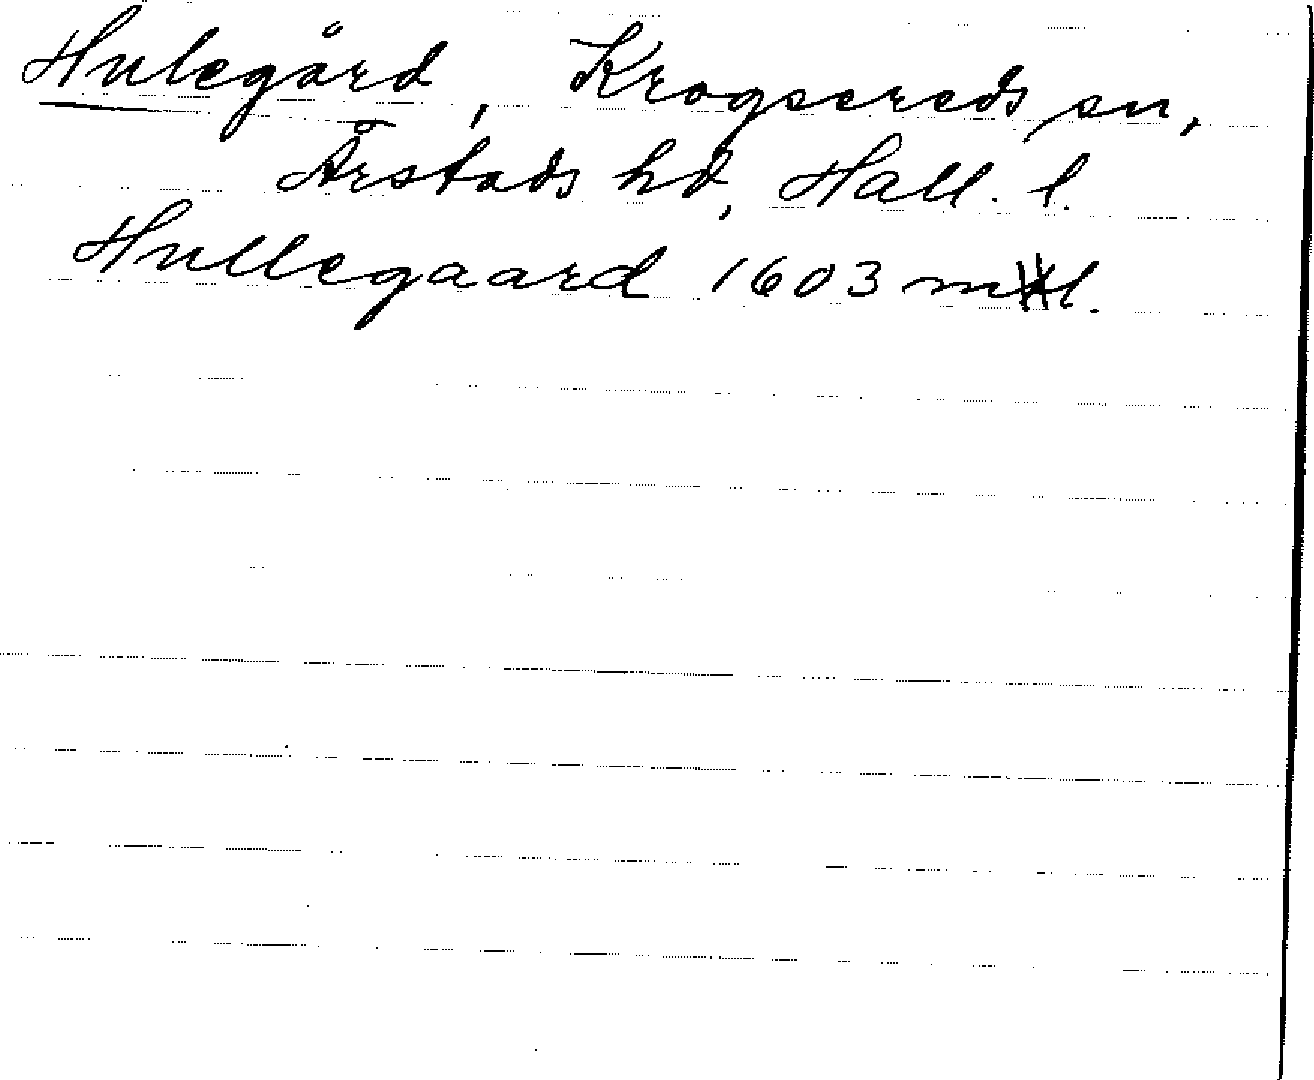 Hulegård, Krogsereds sn,
Årstads hd, Hall. l.
Hullegaard 1603 ml.